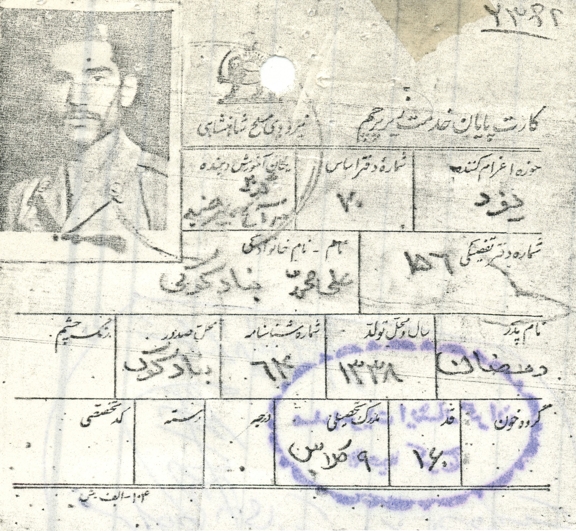 ۲۳۸۲
کارت پایان خدمت زیر پرچم
نیروهای مسلح شاهنشاهی
حوزه اعزام کننده شماره دفتر اساس یگان آموزش دهنده
یزد ۷۰
شماره دفتر تفکیکی ۱۵۶ نام - نام خانوادگی
علی محمد بنادکوکی
نام پدر سال و محل تولد شماره شناسنامه محل صدور رنگ چشم
رمضان ۱۳۳۸ ۶۴ بنادکوک
گروه خون قد مدرک تحصیلی درجه رسته کد تخصصی
۱۶۰ ۹ کلاس
۱۰۴-الف-ش